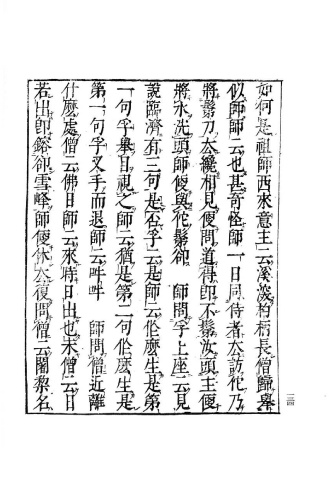 如何是祖師西來意主云溪深杓柄長僧歸舉
似師師云也甚奇怪師一日同侍者去訪他乃
將鬀刀去纔相見便問道得即不鬀汝頭主便
將水洗頭師便與他鬀却　師問孚上座云見
說臨濟有三句是否孚云是師云作麽生是第
一句孚舉目視之師云猶是第二句作麽生是
第一句孚叉手而退師云吽吽　師問僧近離
什麽處僧云佛日師云來時日出也未僧云日
若出即鎔却雪峰師便休去復問僧云闍黎名
三四